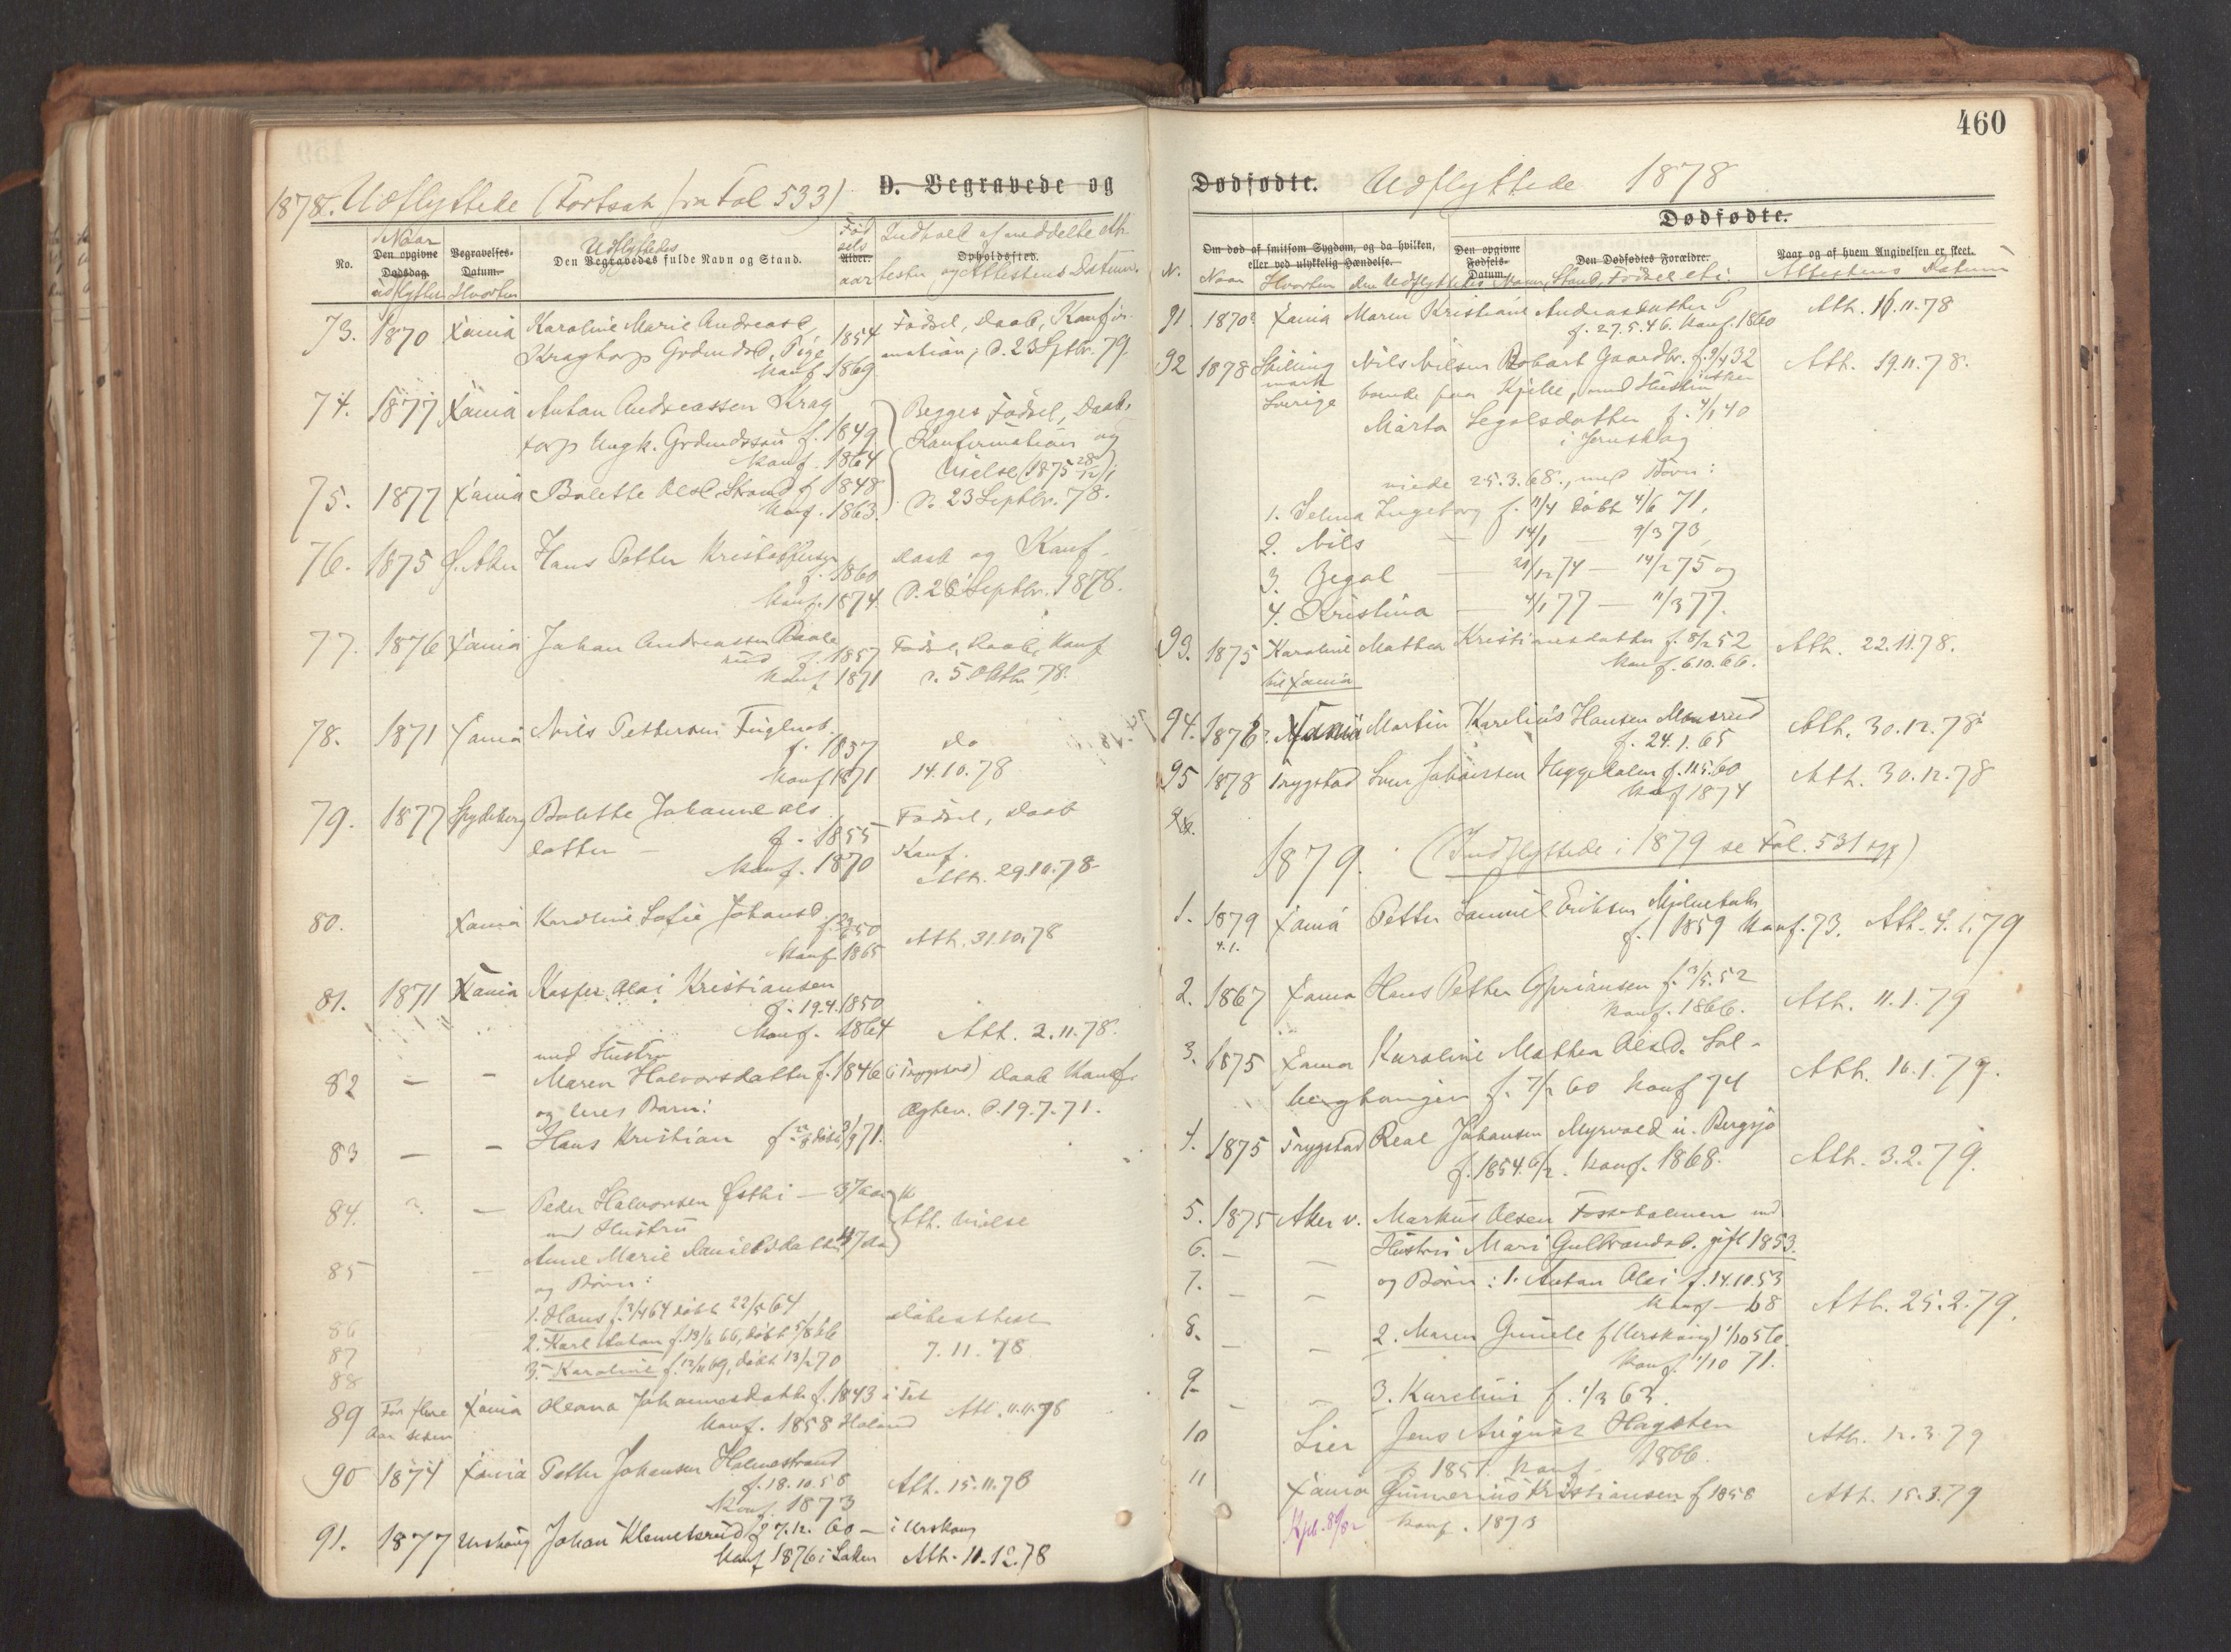 1878. Udflyttede (Fortsat fra Fol 533)
D. Begravede og
No.
Naar
Den opgivne
Dødsdag.
udflyttet
Begravelses-
Datum.
Hvorhen
Udflyttedes
Den Begravedes fulde Navn og Stand.
Fød
sels
Alder.
aar
Indhold af meddelte At-
Opholdssted.
tester og Attestens Datum.
73. 1870 Xania Karoline Marie Andreasd. 1854 Fødsel, Daab, Konfir-
Kragtorp Grdmdsd. Pige mation; D. 23 Septbr. 79.
Konf. 1869
74. 1877 Xania Anton Andreassen Krag Begges Fødsel, Daab,
torp Ungk. Grdmdssøn f. 1849 Konfirmation og
Konf. 1864 Vielse (1875 28/12)
75. 1877 Xania Bolette Olsd. Strand f 1848 D. 23 Septbr. 78.
Konf. 1863.
76. 1875 Ø. Aker Hans Petter Kristoffersen Daab og Konf.
f. 1860
Konf. 1874. D. 28 Septbr. 1878.
77. 1876 Xania Johan Andreassen
rud f. 1857 Fødsel, Daab, Konf
Konf 1871 D. 5 Oktbr 78.
78. 1871 Xania Nils Pettersen
f. 1837 Do
Konf 1871 14.10.78
79. 1877 Spydeberg Bolette Johanne Ols Fødsel, Daab
datter f. 1855 Konf.
Konf. 1870 Att. 29.10.78
80. Xania Karoline Sofie Johansd.
f. 50
Konf. 1865 Att. 31.10.78
81. 1871 Xania Kasper Olai Kristiansen
f. 19.4.1850
Konf. 1864 Att. 2.11.78.
med Hustru
82 — - Maren Halvorsdatter f. 1846 (i Trygstad) Daab Konf.
og deres Barn: Ægtev. D. 19.7.71.
83 — - Hans Kristian f døbt /9 71.
84. ? — Peder Halvorsen Østbi — 37 Aar
med Hustru Att. Vielse
85 — Anne Marie Danielsdatter 47 Aar
og Børn:
86 1. Hans f. 3/4 64 døbt 22/5 64 Døbeattest
87 2. Karl Johan f. 13/6 66, døbt 5/8 66 7.11.78
88 3. Karoline f. 12/11 69, døbt 13/2 70
89 For flere Xania Oleana Johannesdatter f. 1843 i Set
Aar siden Konf. 1858 Høland Att. 11.11.78
90 1874 Xania Petter Johansen Holmestrand
f. 18.10.58 Att. 15.11.78
Konf. 1873
91. 1877 Urskoug Johan Klemetsrud f 7.12. 60 — i Urskoug
Konf 1876 i Laken Att. 11.12.78
460
Dødfødte. Udflyttede 1878
Dødfødte.
Om død af smitsom Sygdom, og da hvilken,
eller ved ulykkelig Hændelse.
Den opgivne
Fødsels-
Datum.
Den Dødfødtes Forældre.
Naar og af hvem Angivelsen er skeet.
N. Naar Hvorhen den Udflyttedes Navn, Stand, Fødsel etc. Attestens Datum
91 1870? Xania Maren Kristiane Andreasdatter P Att. 16.11.78
f. 27.5.46. Konf. 1860
92 1878 Skilling Nils Nilsen Gaardbr. f. 9/4 32 Att. 19.11.78.
mark boende paa Kjelle, med Hustru
Sverige Märta Segolsdatter f. 4/1 40
i Jernskog
viede 25.3.68., med Børn:
1. Selma Ingeborg f. 11/4 døbt 4/6 71,
2. Nils — 14/1 — 9/3 73,
3. Zegol — 21/12 74 — 14/2 75 og
4. Kristina — 4/1 77 — 11/3 77.
93. 1875 Karoline Mathea Kristiansdatter f. 8/2 52 Att. 22.11.78.
til Xania Konf. 6.10.66.
94. 1876? Xania Martin Karelius Hansen Monsrud Att. 30.12.78
f. 24.1.65
95 1878 Trygstad Sven Johansen Heggeholen f. 11.5.60 Att. 30.12.78
Konf 1874
96.
1879. (Indflyttede i 1879 se Fol. 531 )
1. 1879 Xania Petter Samuel Eriksen
4.1. f. 1859 Konf. 73. Att. 4.1.79
2. 1867 Xania Hans Petter Cypriansen f. 3/5 52
Konf. 1866. Att. 11.1.79
3. 1875 Xania Karoline Mathea Olsd. Sol-
bergtangen f. 7/2 60 Konf 74 Att. 16.1.79.
4. 1875 Trygstad Real Johansen Myrvold u. Bergsjø
f. 1854. 6/2. Konf. 1868. Att. 3.2.79.
5. 1875 Aker v. Markus Olsen Fosseholmen med
6. — — Hustru Mari Gulbrandsd. gift 1853.
7. — — og Børn: 1. Anton Olai f. 14.10.53
Konf — 68 Att. 25.2.79.
8. — — 2. Maren Gunele f (Urskoug) 1/10 56.
Konf. 1/10 71.
9 — — 3. Karelius f. 1/3 63.
10 Lier Jens August Hagsten Att. 12.3.79
f. 1851. Konf. 1866.
11 Xania Gunnerius Kristiansen f 1858 Att. 15.3.79
Konf. 1873